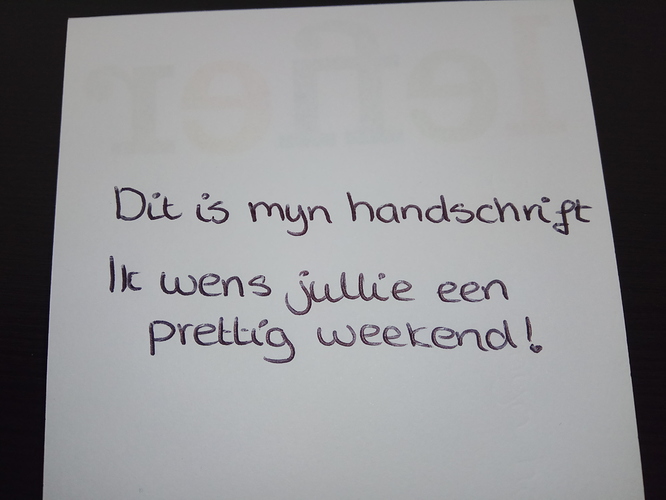 Dit is myn handschrift
Ik wens jullie een
prettig weekend!